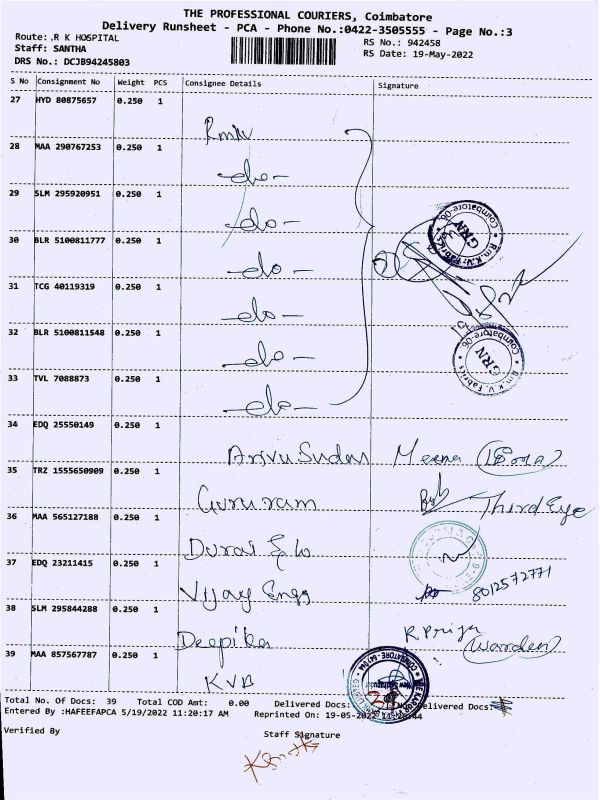 THE PROFESSIONAL COURIERS, Coimbatore
Delivery Runsheet - PCA - Phone No.:0422-3505555 - Page No.:3
Route: ,R K HOSPITAL
RS No.: 942458
Staff: SANTHA
RS Date: 19-May-2022
DRS No.: DCJB94245803
S No Consignment No Weight PCS Consignee Details Signature
27 HYD 80875657 0.250 1
Rmkv
28 MAA 290767253 0.250 1
-do-
29 SLM 295920951 0.250 1
-do-
30 BLR 5100811777 0.250 1
-do-
31 TCG 40119319 0.250 1
-do-
32 BLR 5100811548 0.250 1
-do-
33 TVL 7088873 0.250 1
-do-
Rm.K.V. Fabrics
Coimbatore-06.
GRN
Rm.K.V. Fabrics
Coimbatore-06.
GRN
34 EDQ 25550149 0.250 1
Arivu Sudar Meena
35 TRZ 1555650909 0.250 1
Guru ram Third Eye
36 MAA 565127188 0.250 1
Durai & Co
37 EDQ 23211415 0.250 1
Vijay Engg 8012572771
38 SLM 295844288 0.250 1
Deepika R Priya (Warden)
39 MAA 857567787 0.250 1
KVB
Total No. Of Docs: 39 Total COD Amt: 0.00 Delivered Docs: Delivered Docs:
Entered By :HAFEEFAPCA 5/19/2022 11:20:17 AM Reprinted On: 19-05-2022
Verified By Staff Signature